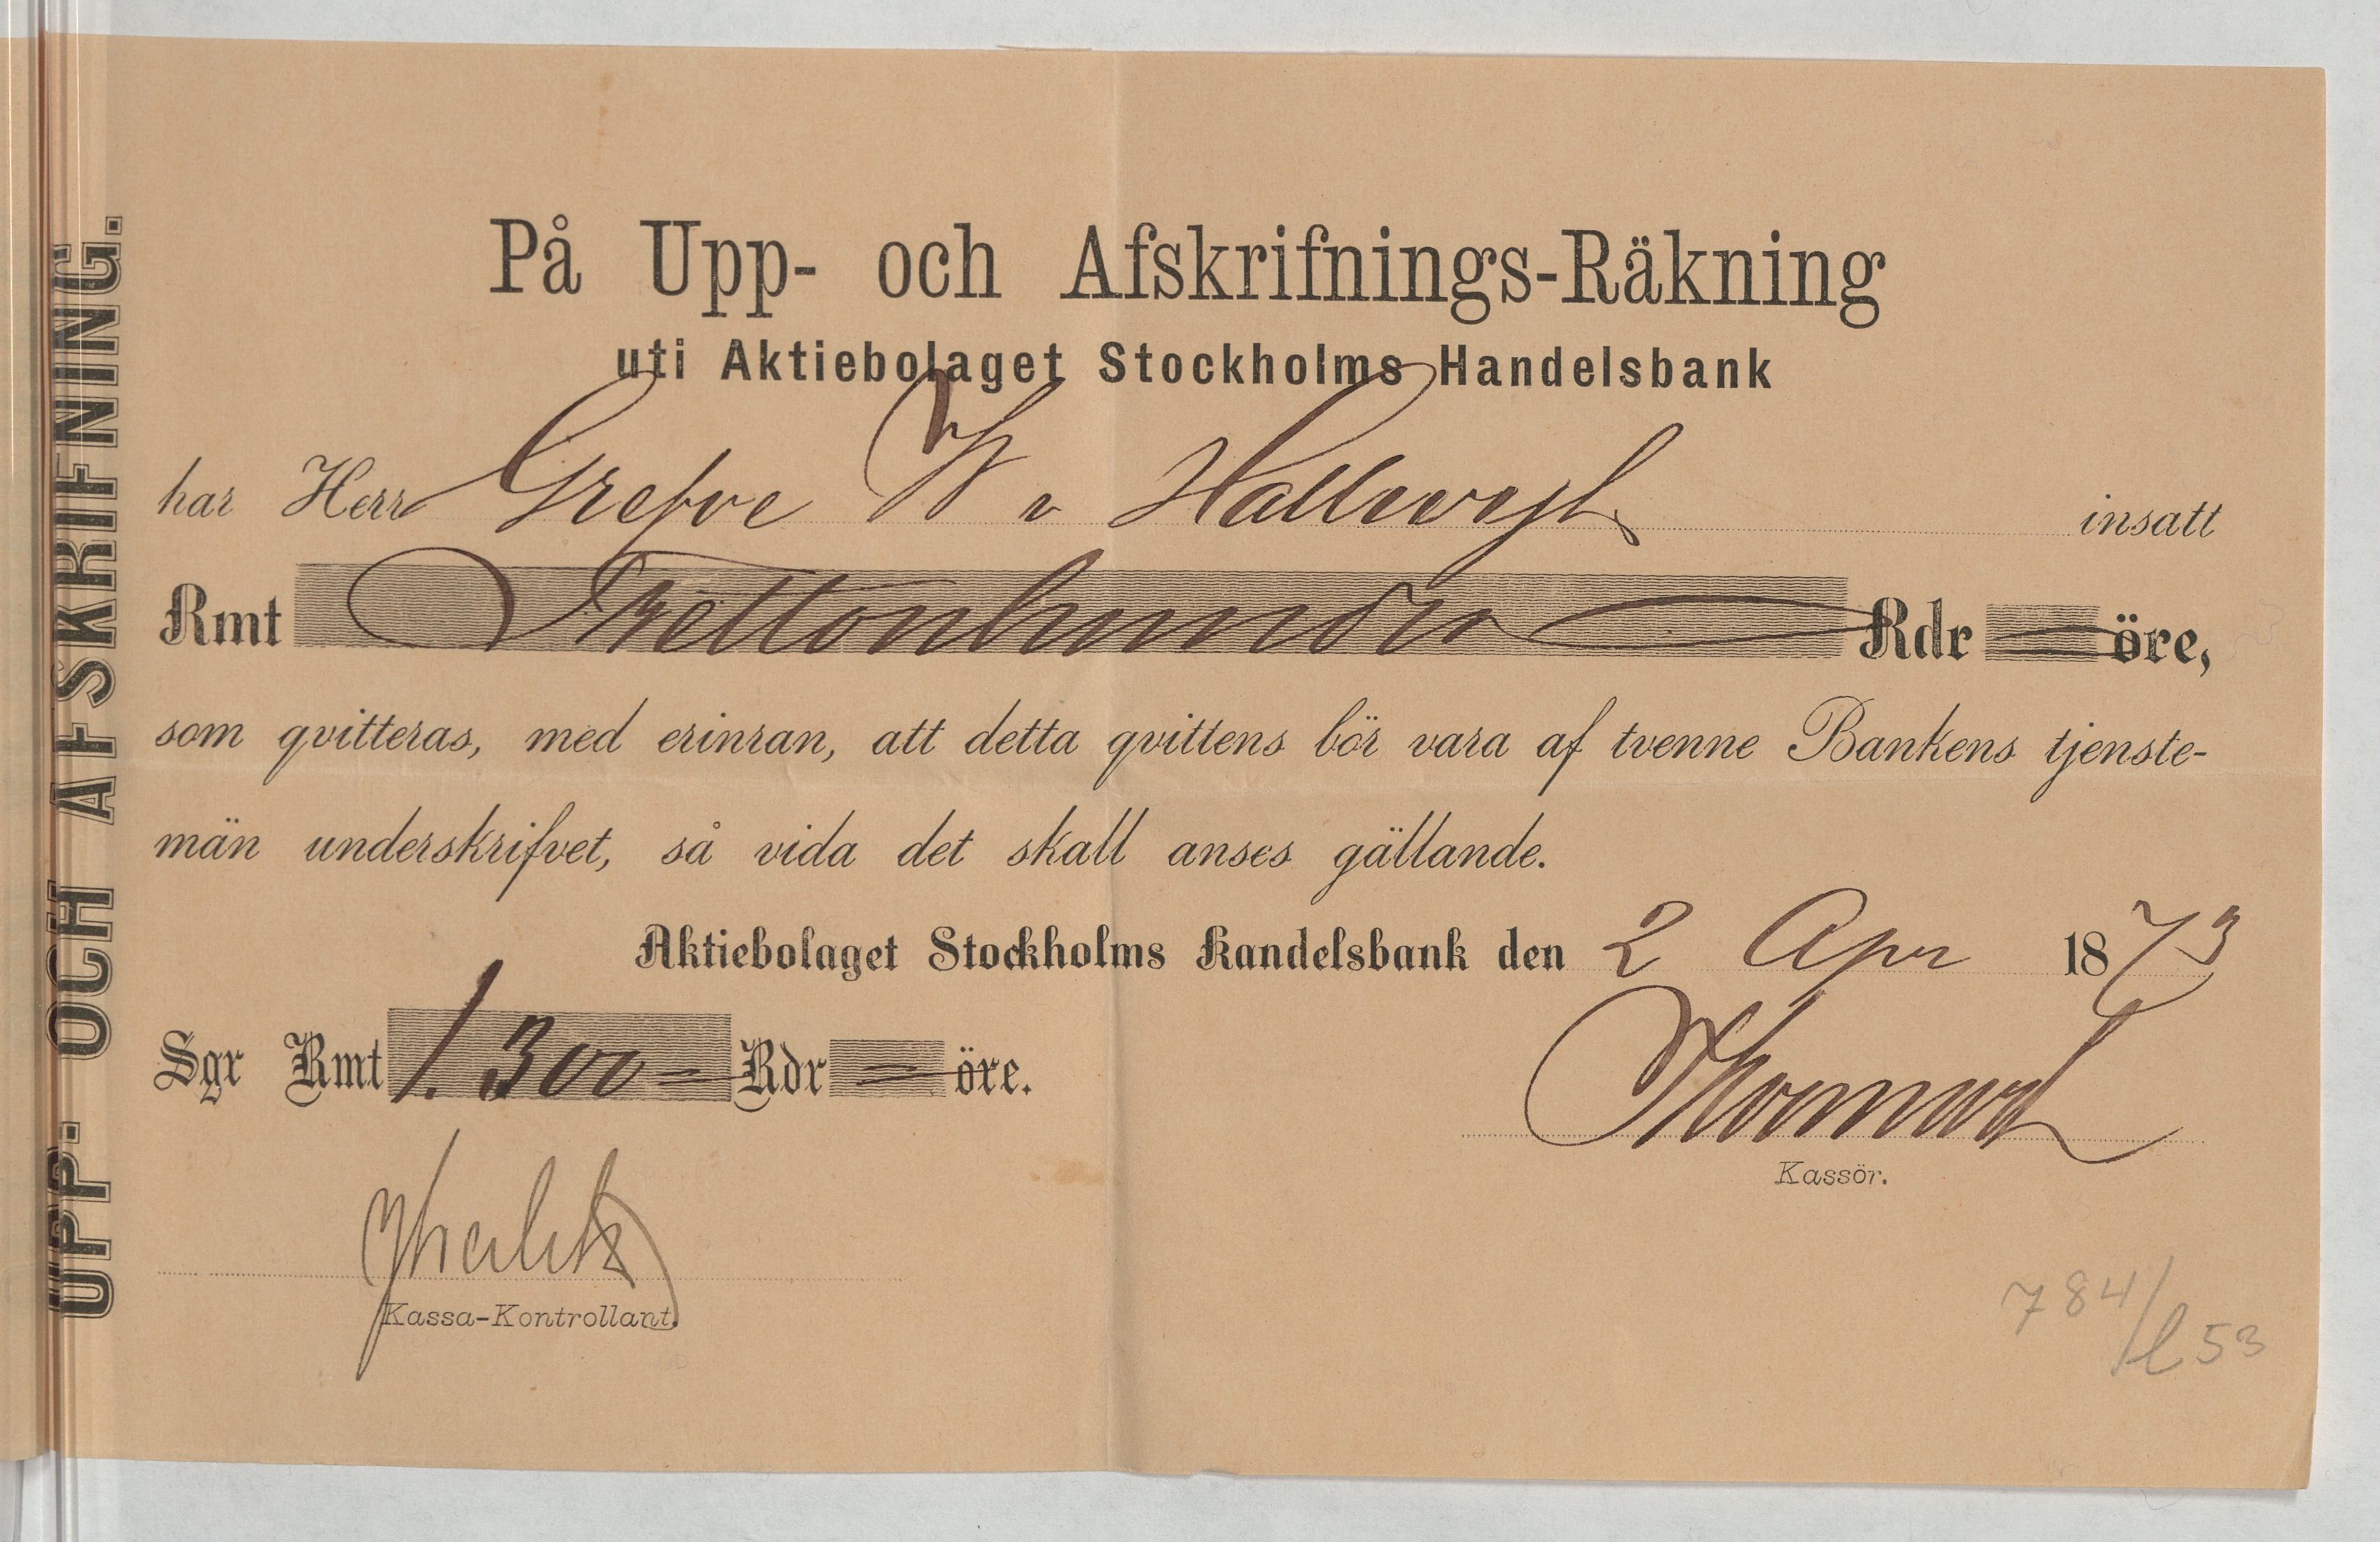 UPP- OCH AFSKRIFNING.
På Upp- och Afskrifnings-Räkning
uti Aktiebolaget Stockholms Handelsbank
har Herr Grefve W v Hallwyl insatt
Rmt Trettonhundra Rdr öre,
som qvitteras, med erinran, att detta qvittens bör vara af tvenne Bankens tjenste-
män underskrifvet, så vida det skall anses gällande.
Aktiebolaget Stockholms Handelsbank den 2 Apr 1873
Sgr Rmt 1.300 = Rdr = öre.
Kassör.
Kassa-Kontrollant.
784/l 53